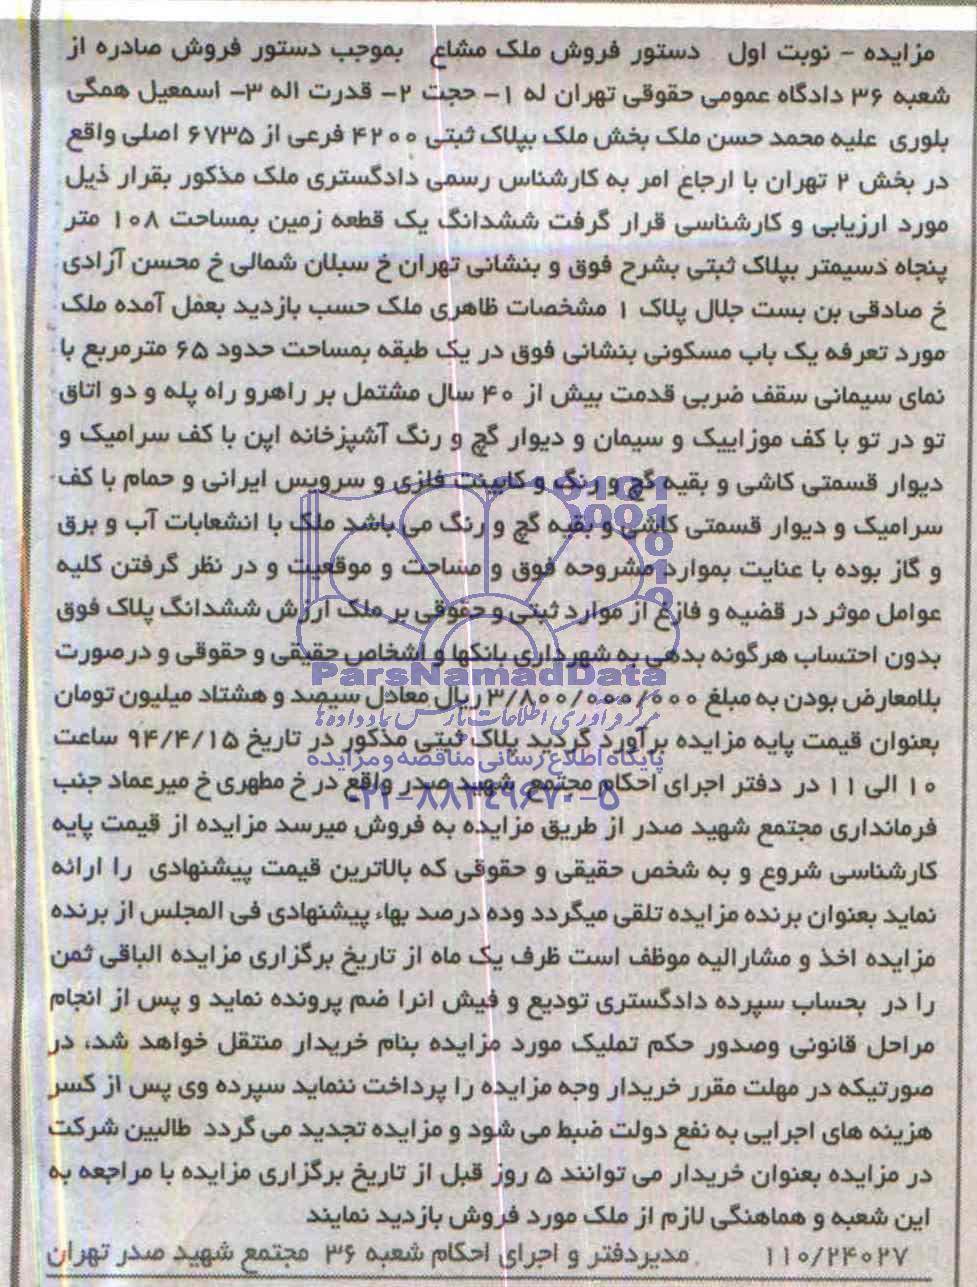 مزایده - نوبت اول   دستور فروش ملک مشاع   بموجب دستور فروش صادره از
شعبه ۳۶ دادگاه عمومی حقوقی تهران له ۱- حجت ۲- قدرت اله ۳- اسمعیل همگی
بلوری علیه محمد حسن ملک بخش ملک بپلاک ثبتی ۴۲۰۰ فرعی از ۶۷۳۵ اصلی واقع
در بخش ۲ تهران با ارجاع امر به کارشناس رسمی دادگستری ملک مذکور بقرار ذیل
مورد ارزیابی و کارشناسی قرار گرفت ششدانگ یک قطعه زمین بمساحت ۱۰۸ متر
پنجاه دسیمتر بپلاک ثبتی بشرح فوق و بنشانی تهران خ سبلان شمالی خ محسن آزادی
خ صادقی بن بست جلال پلاک ۱ مشخصات ظاهری ملک حسب بازدید بعمل آمده ملک
مورد تعرفه یک باب مسکونی بنشانی فوق در یک طبقه بمساحت حدود ۶۵ مترمربع با
نمای سیمانی سقف ضربی قدمت بیش از ۴۰ سال مشتمل بر راهرو راه پله و دو اتاق
تو در تو با کف موزاییک و سیمان و دیوار گچ و رنگ آشپزخانه اپن با کف سرامیک و
دیوار قسمتی کاشی و بقیه گچ و رنگ و کابینت فلزی و سرویس ایرانی و حمام با کف
سرامیک و دیوار قسمتی کاشی و بقیه گچ و رنگ می باشد ملک با انشعابات آب و برق
و گاز بوده با عنایت بموارد مشروحه فوق و مساحت و موقعیت و در نظر گرفتن کلیه
عوامل موثر در قضیه و فازغ از موارد ثبتی و حقوقی بر ملک ارزش ششدانگ پلاک فوق
بدون احتساب هرگونه بدهی به شهرداری بانکها و اشخاص حقیقی و حقوقی و درصورت
ParsNamadData
بلامعارض بودن به مبلغ ۳/۸۰۰/۰۰۰/۰۰۰ ریال معادل سیصد و هشتاد میلیون تومان
مرکز فرآوری اطلاعات پارس نماد داده ها
بعنوان قیمت پایه مزایده برآورد گردید پلاک ثبتی مذکور در تاریخ ۹۴/۴/۱۵ ساعت
پایگاه اطلاع رسانی مناقصه و مزایده
۱۰ الی ۱۱ در دفتر اجرای احکام مجتمع شهید صدر واقع در خ مطهری خ میرعماد جنب
۰۲۱-۸۸۳۴۹۶۷۰-۵
فرمانداری مجتمع شهید صدر از طریق مزایده به فروش میرسد مزایده از قیمت پایه
کارشناسی شروع و به شخص حقیقی و حقوقی که بالاترین قیمت پیشنهادی را ارائه
نماید بعنوان برنده مزایده تلقی میگردد وده درصد بهاء پیشنهادی فی المجلس از برنده
مزایده اخذ و مشارالیه موظف است ظرف یک ماه از تاریخ برگزاری مزایده الباقی ثمن
را در بحساب سپرده دادگستری تودیع و فیش انرا ضم پرونده نماید و پس از انجام
مراحل قانونی وصدور حکم تملیک مورد مزایده بنام خریدار منتقل خواهد شد، در
صورتیکه در مهلت مقرر خریدار وجه مزایده را پرداخت ننماید سپرده وی پس از کسر
هزینه های اجرایی به نفع دولت ضبط می شود و مزایده تجدید می گردد طالبین شرکت
در مزایده بعنوان خریدار می توانند ۵ روز قبل از تاریخ برگزاری مزایده با مراجعه به
این شعبه و هماهنگی لازم از ملک مورد فروش بازدید نمایند
۱۱۰/۲۴۰۲۷   مدیردفتر و اجرای احکام شعبه ۳۶ مجتمع شهید صدر تهران